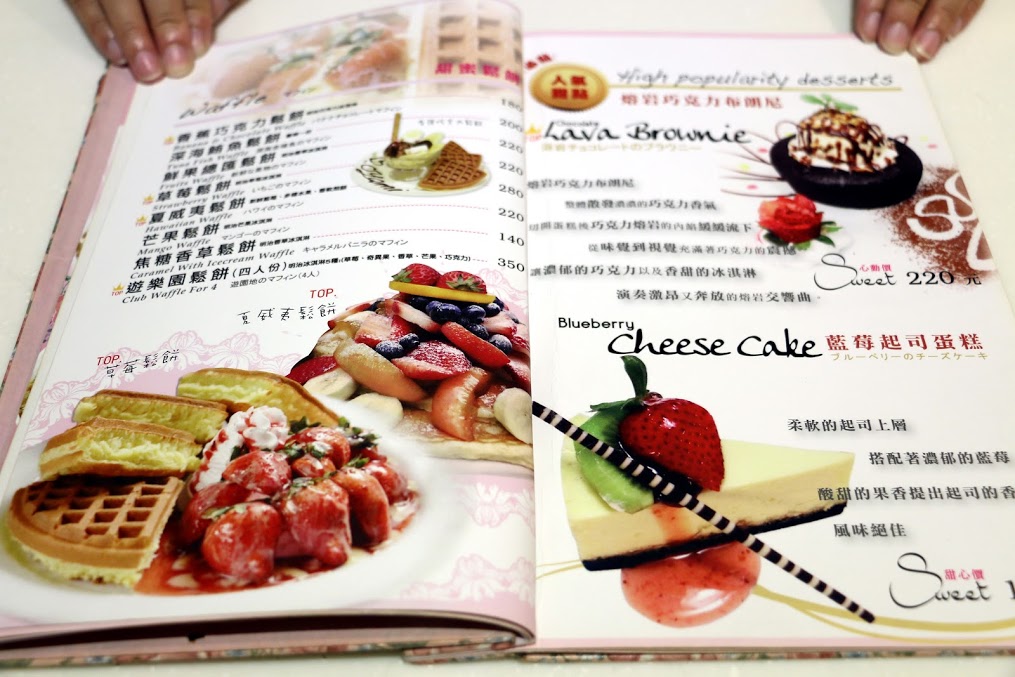 甜蜜鬆餅
Waffle
180
香蕉巧克力鬆餅
Banana & Chocolate Waffle バナナチョコレートマフィン
200
深海鮪魚鬆餅
Tuna Fish Waffle
220
鮮果總匯鬆餅
Fruits Waffle
220
草莓鬆餅
Strawberry Waffle いちごのマフィン
280
TOP 夏威夷鬆餅
Hawaiian Waffle ハワイのマフィン
220
芒果鬆餅 明治芒果冰淇淋
Mango Waffle マンゴーのマフィン
140
焦糖香草鬆餅 明治香草冰淇淋
Caramel With Icecream Waffle キャラメルバニラのマフィン
350
TOP 遊樂園鬆餅(四人份) 明治冰淇淋5種(草莓、奇異果、香草、芒果、巧克力)
Club Waffle For 4 遊園地のマフィン(4人)
TOP.
夏威夷鬆餅
TOP.
草莓鬆餅
人氣
甜點
High popularity desserts
熔岩巧克力布朗尼
Chocolate
Lava Brownie
溶岩チョコレートのブラウニー
熔岩巧克力布朗尼
整體散發濃濃的巧克力香氣
切開蛋糕後巧克力熔岩的內餡緩緩流下
從味覺到視覺充滿著巧克力的震撼
讓濃郁的巧克力以及香甜的冰淇淋
演奏激昂又奔放的熔岩交響曲。
心動價
Sweet 220 元
Blueberry
Cheese Cake 藍莓起司蛋糕
ブルーベリーのチーズケーキ
柔軟的起司上層
搭配著濃郁的藍莓
酸甜的果香提出起司的香
風味絕佳
甜心價
Sweet 1